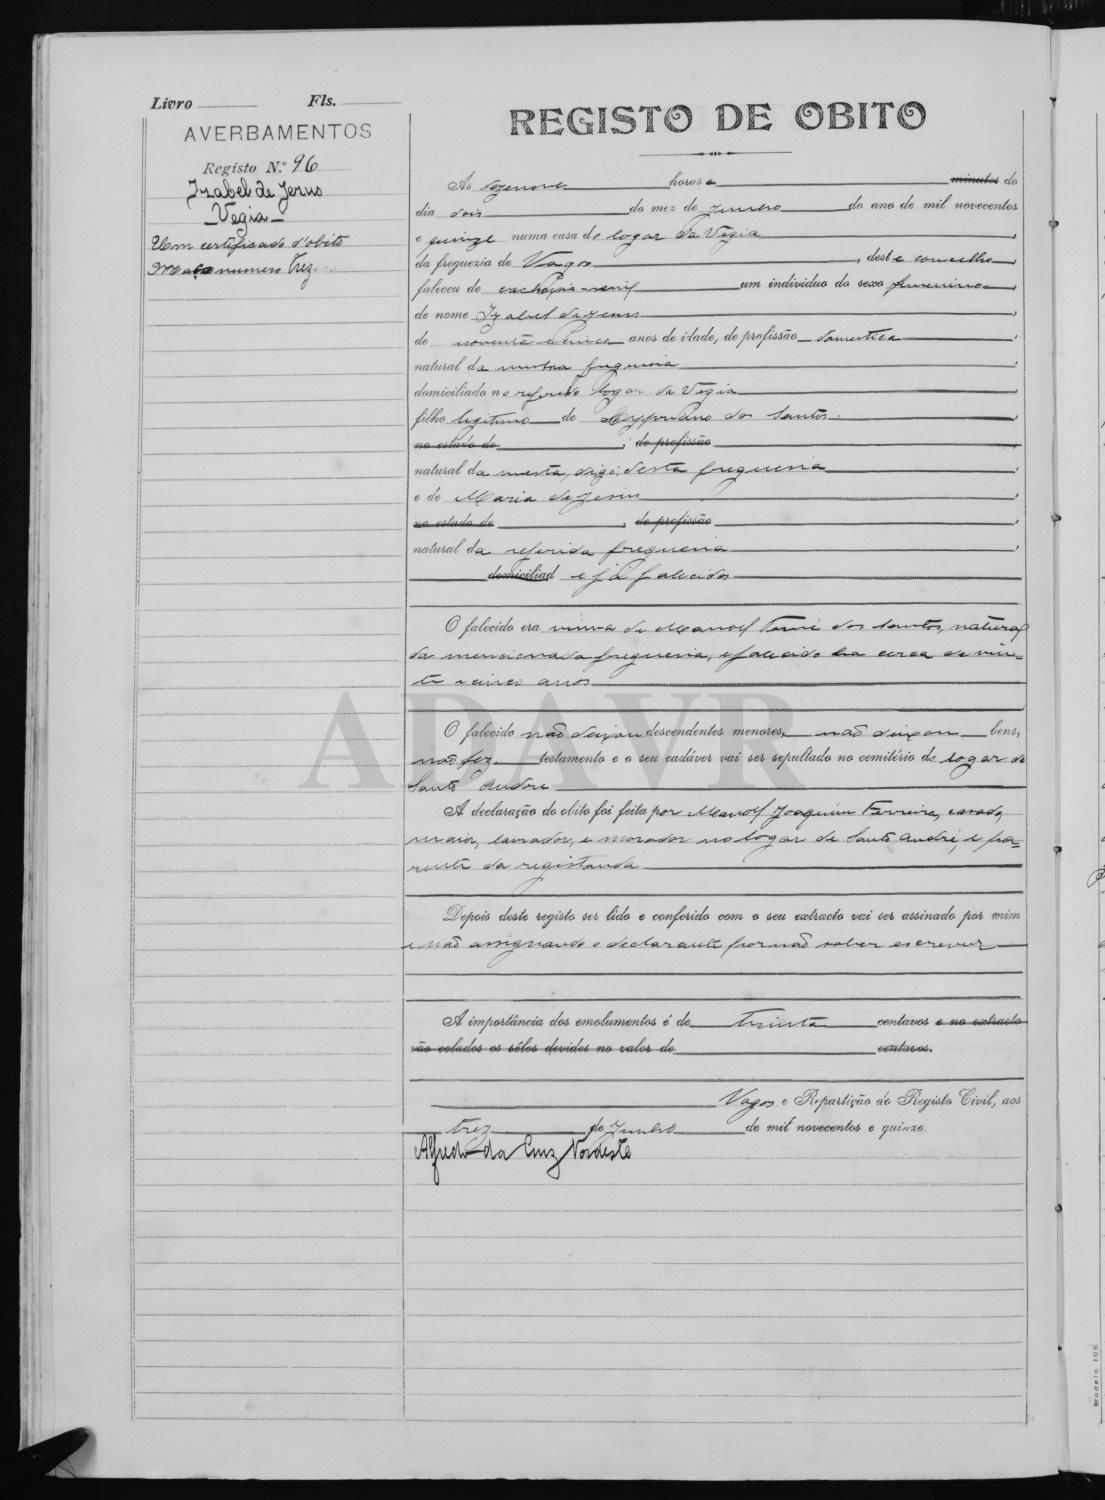 Livro Fls.
AVERBAMENTOS
Registo N.º 96
Izabel de Jezus
Vegia
Um certificado d'obito
Maço numero trez
REGISTO DE OBITO
As dezenove horas e minutos do
dia dois do mez de Junho do ano de mil novecentos
e quinze numa casa do logar da Vegia,
da freguezia de Vagos, deste concelho,
faleceu de cachexia senil um individuo do sexo feminino,
de nome Izabel de Jezus,
de noventa e anos de idade, de profissão domestica,
natural da mesma freguesia,
domiciliado no referido logar da Vegia,
filho legitimo de Cypriano dos Santos,
no estado de, de profissão,
natural da mesta, digo, desta freguesia,
e de Maria de Jesus,
no estado de, de profissão,
natural da referida freguesia,
domiciliad e já falecidos
O falecido era viuva de Manoel Tomé dos Santos, natural
da mencionada freguesia, e falecido ha cerca de vin-
te e cinco anos
O falecido não deixou descendentes menores, não deixou bens,
não fez testamento e o seu cadáver vai ser sepultado no cemitério do logar de
Santo André
A declaração do obito foi feita por Manoel Joaquim Ferreira, casado,
maior, lavrador, e morador no logar de Santo André, e pa-
rente da registanda
Depois deste registo ser lido e conferido com o seu extracto vai ser assinado por mim
e não assignando o declarante por não saber escrever
A importância dos emolumentos é de trinta centavos e no extracto
vão colados os sêlos devidos no valor de centavos.
Vagos e Repartição do Registo Civil, aos
trez de Junho de mil novecentos e quinze.
Alfredo da Cruz Nordeste
ADAVR
Modelo 105